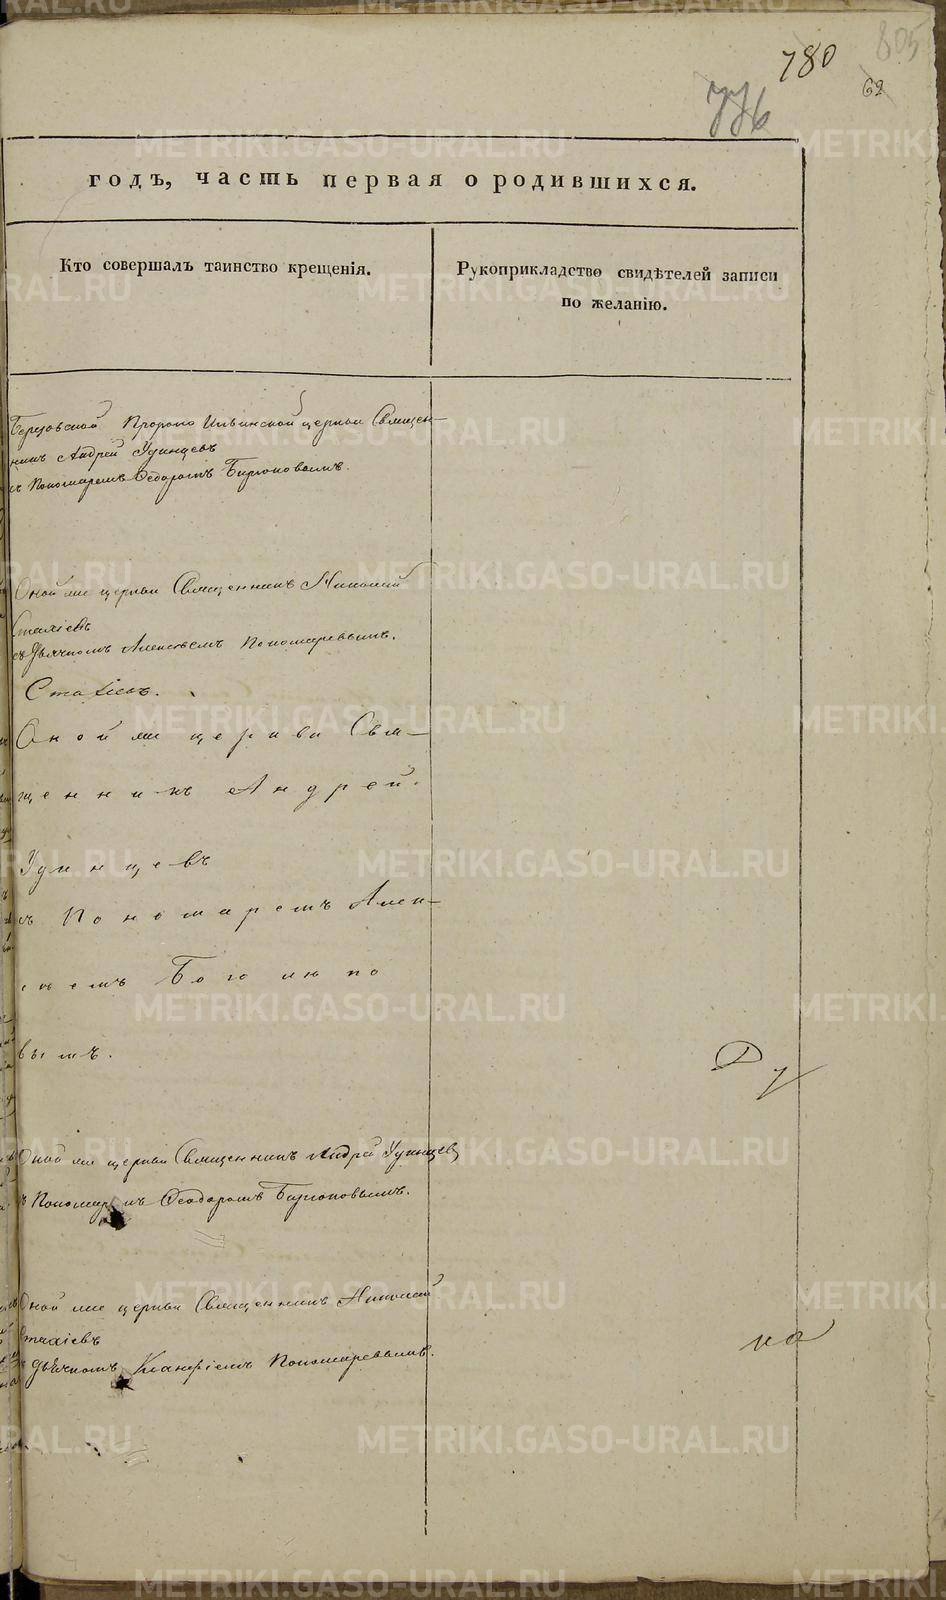 805
780
62
776
годъ, часть первая о родившихся.
Кто совершалъ таинство крещенія.
Рукоприкладство свидѣтелей записи
по желанію.
Пророко Ильинской церкви Священ-
никъ Андрей Удинцевъ
съ Пономаремъ Ѳедоромъ Бирюковымъ.
Оной же церкви Священникъ Николай
Стахіевъ
съ Дьячкомъ Алексѣемъ Пономаревымъ.
Стахіевъ.
Оной же церкви Свя-
щенникъ Андрей
Удинцевъ
съ Пономаремъ Алек-
сѣемъ
вымъ.
Оной же церкви Священникъ Андрей Удинцев
съ Пономаремъ Ѳеодоромъ Бирюковымъ.
Оной же церкви Священникъ Николай
Стахіевъ
съ дьячкомъ Пономаревымъ.
но
METRIKI.GASO-URAL.RU